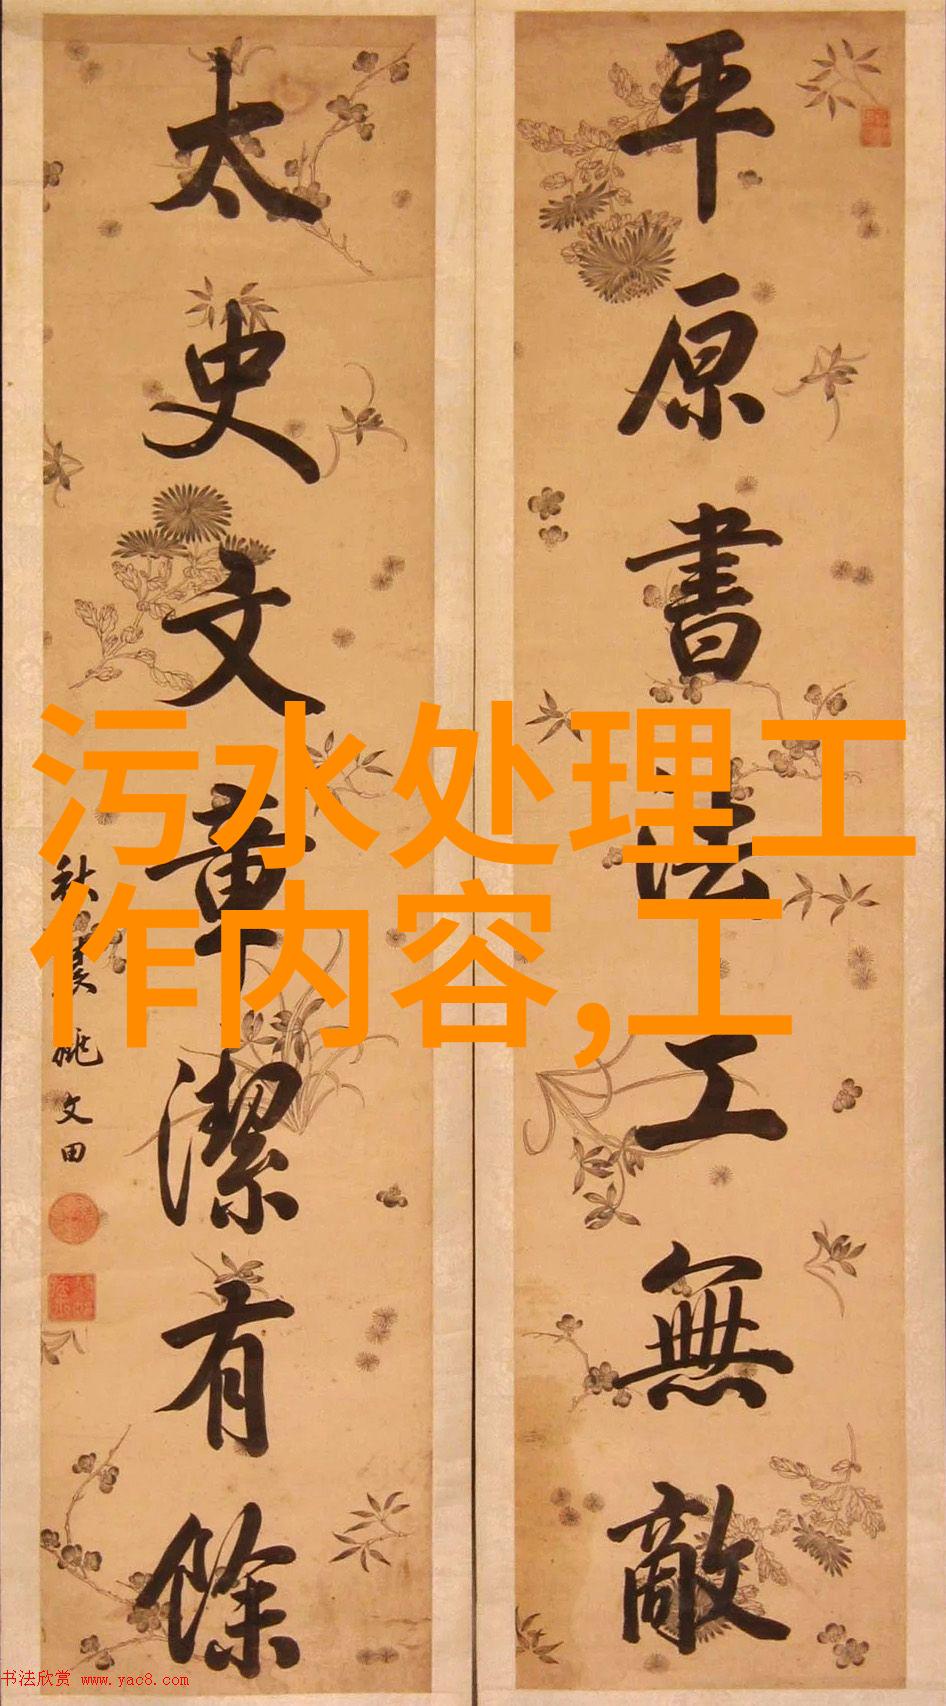 平原書法工無敵
太史文章潔有餘
秋農姚文田
污水处理工
作内容,工
书法欣赏 www.yac8.com